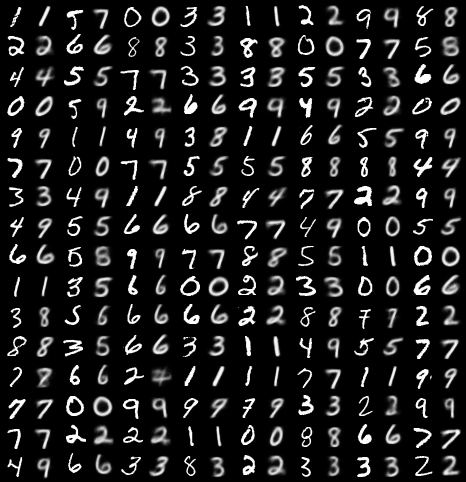 1 1 5 7 0 0 3 3 1 1 2 2 9 9 8 8
2 2 6 6 8 8 3 3 8 8 0 0 7 7 5 8
4 4 5 5 7 7 3 3 3 3 5 5 3 3 6 6
0 0 5 9 2 2 6 6 9 9 4 9 2 2 0 0
9 9 1 1 4 9 3 8 1 1 6 6 5 5 9 9
7 7 0 0 7 7 5 5 5 5 8 8 8 8 4 4
3 3 4 9 1 1 8 8 4 4 7 7 2 2 9 9
4 9 5 5 6 6 6 6 7 7 4 9 0 0 5 5
6 6 5 8 9 9 7 7 8 8 5 5 1 1 0 0
1 1 3 5 6 6 0 0 2 2 3 3 0 0 6 6
3 8 5 6 6 6 6 6 2 2 8 8 7 7 2 2
8 8 3 5 6 6 3 3 1 1 4 9 5 5 7 7
7 8 6 6 2 1 1 1 1 7 7 1 1 9 9
7 7 0 0 9 9 9 9 7 9 3 3 2 2 9 9
7 7 2 2 2 2 1 1 0 0 8 8 6 6 7 7
4 9 6 6 3 3 8 3 2 2 3 3 3 3 2 2